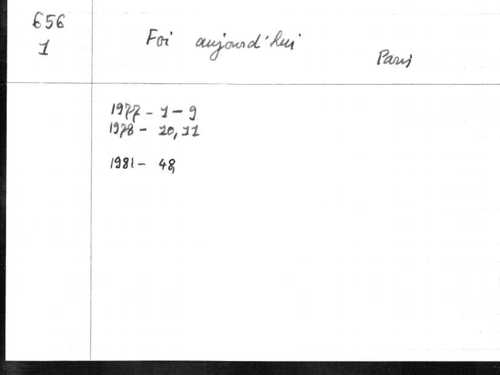 656
1
Foi aujourd'hui
Paris
1977 - 1 - 9
1978 - 10, 11
1981 - 48,